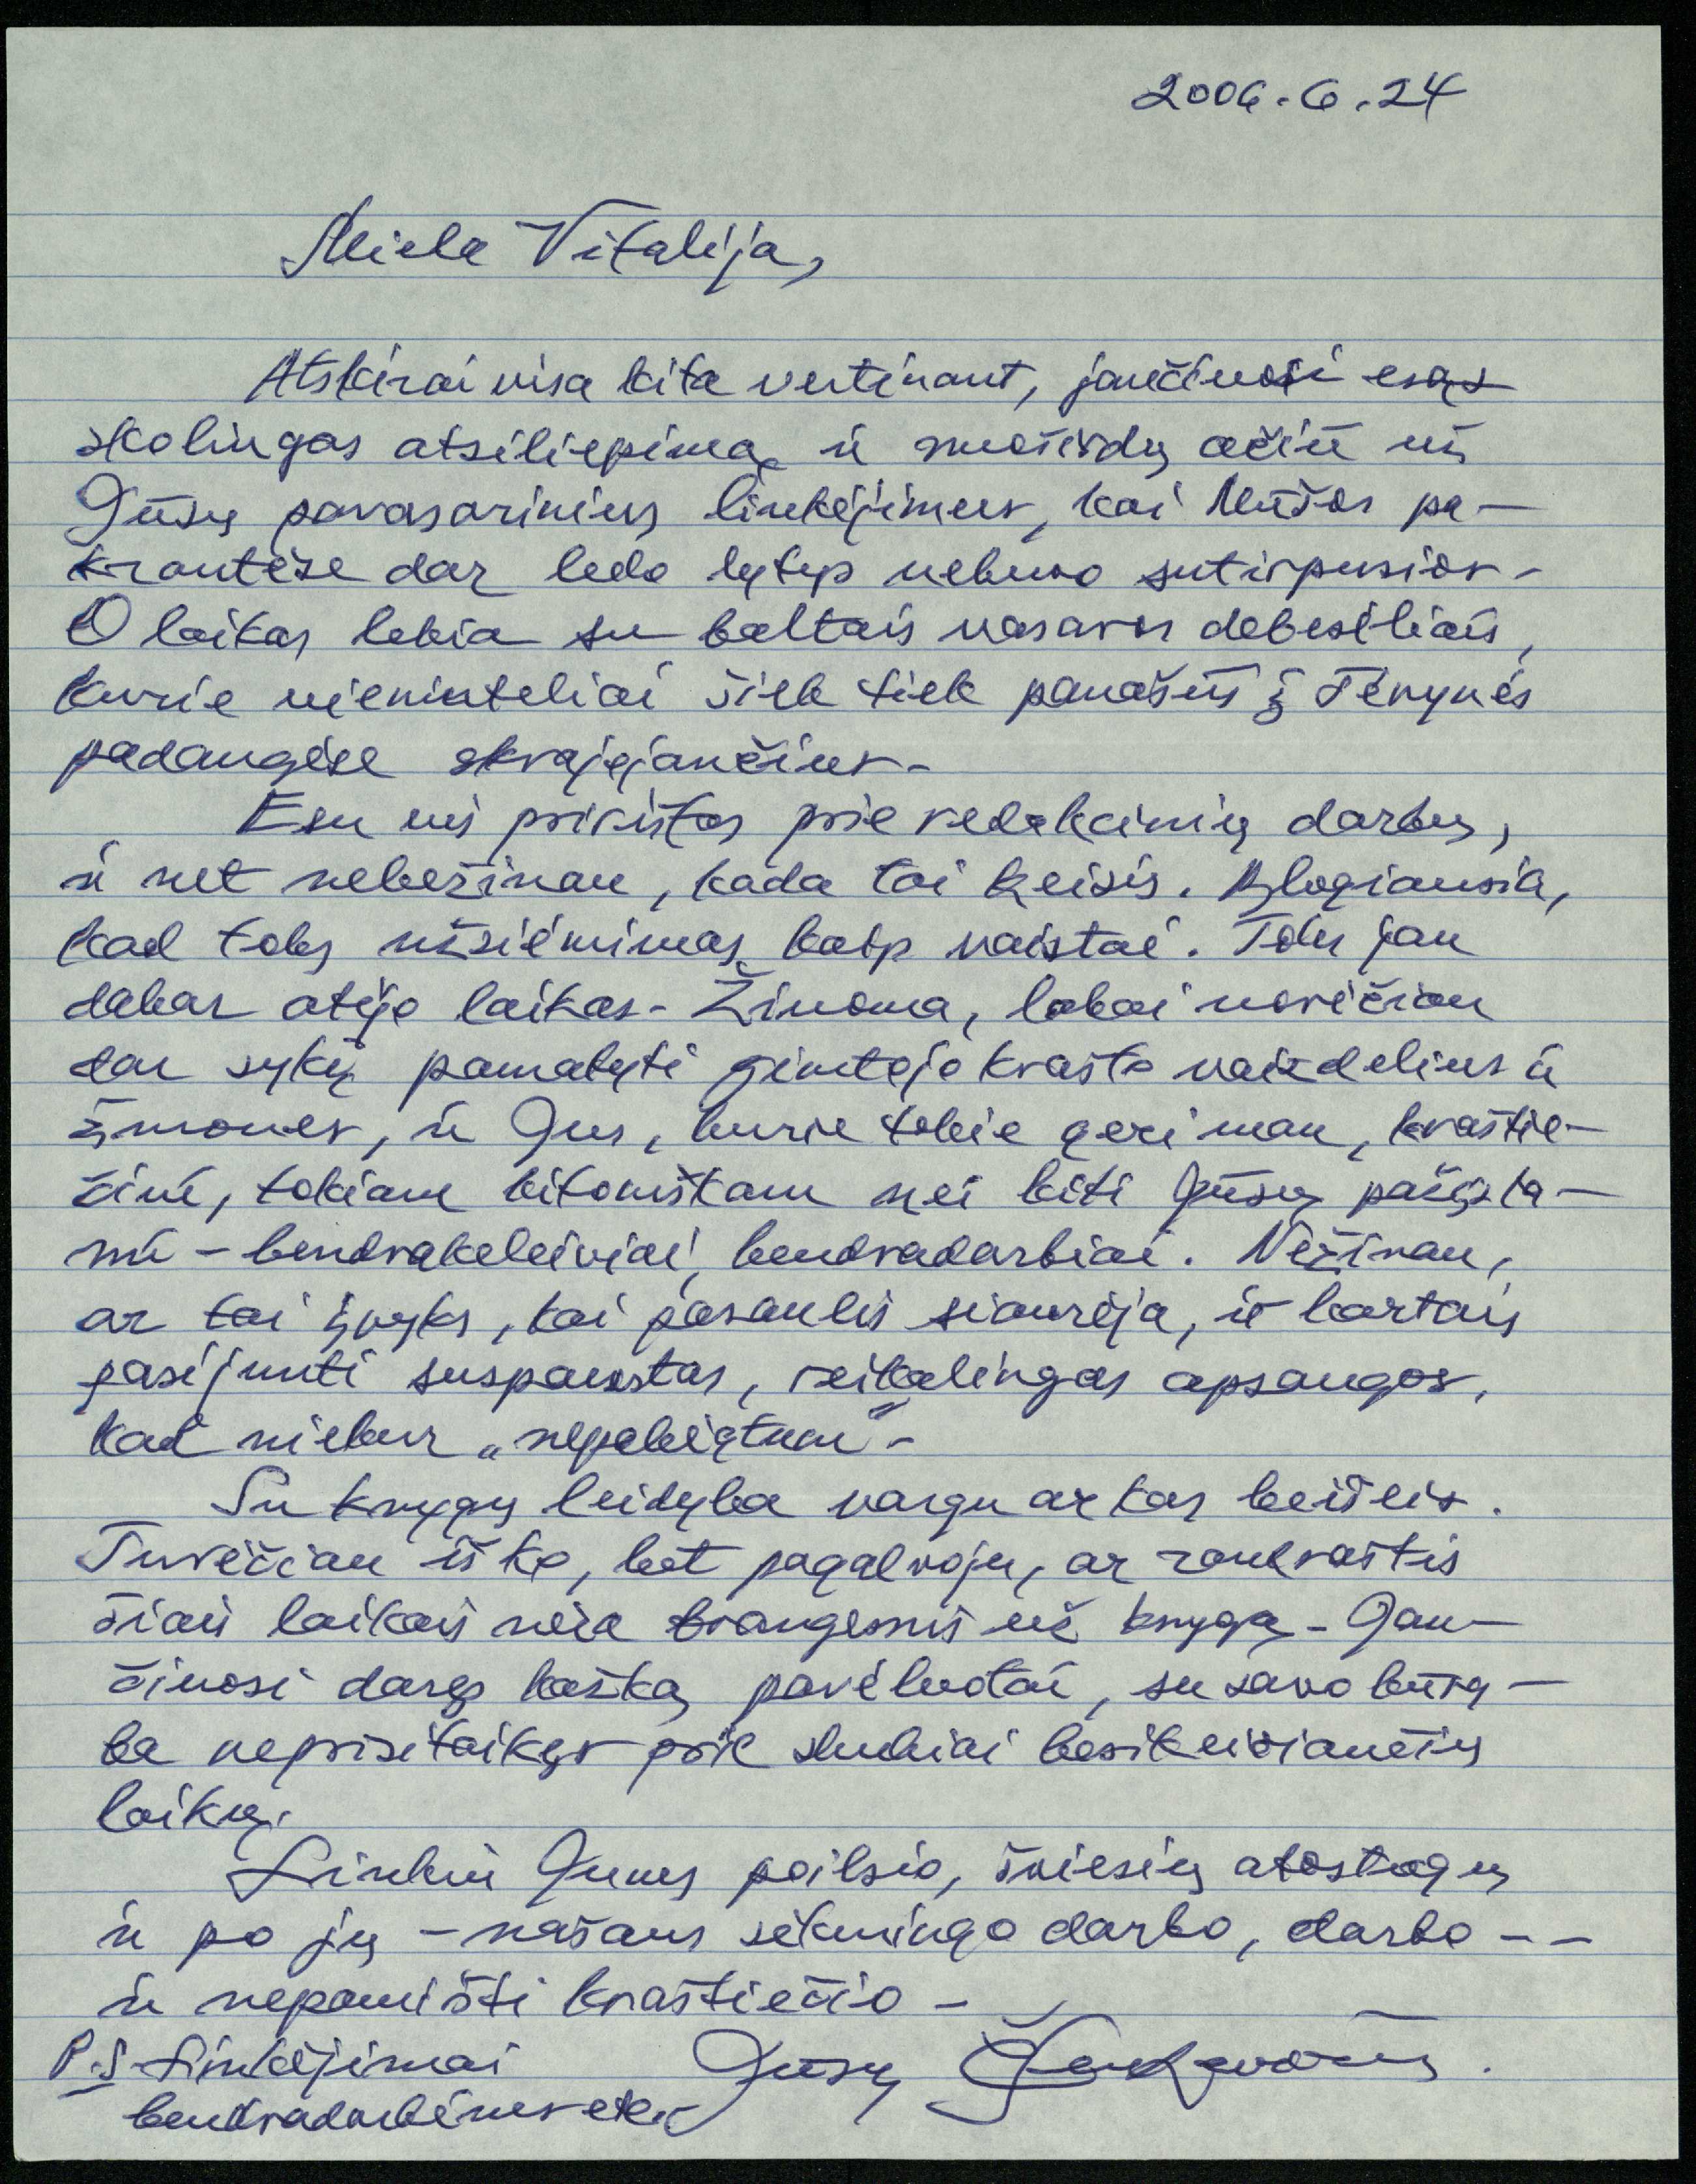 2006.6.24
Miela Vitalija,
Atskirai visa kita vertinant, jaučiuosi esąs
skolingas atsiliepimą ir nuoširdų ačiū už
Jūsų pavasarinius linkėjimus, kai Mūšos pa-
krantėse dar ledo lyčių nebuvo sutirpusios -
O laikas lekia su baltais vasaros debesėliais,
kurie vieninteliai šiek tiek panašūs į Tėvynės
padangėse skrajojančius -
Esu vis pririštas prie redakcinių darbų,
ir net nebežinau, kada tai keisis. Blogiausia,
kad toks užsiėmimas kaip vaistai. Toks jau
dabar atėjo laikas - Žinoma, labai norėčiau
dar sykį pamatyti gimtojo krašto vaizdelius ir
žmones, ir Jus, kurie tokie geri man, kraštie-
čiui, tokiam kitoniškam nei kiti Jūsų pažįsta-
mi - bendrakeleiviai, bendradarbiai. Nežinau,
ar tai įvyks, kai pasaulis siaurėja, ir kartais
pasijunti suspaustas, reikalingas apsaugos,
kad niekur „nepabėgtum“ -
Su knygų leidyba vargu ar kas beišeis.
Turėčiau iš ko, bet pagalvoju, ar rankraštis
šiais laikais nėra brangesnis už knygą - Jau-
čiuosi daręs kažką pavėluotai, su savo kūry-
ba neprisitaikęs prie skubiai besikeičiančių
laikų.
Linkiu Jums poilsio, šviesių atostogų
ir po jų - našaus sėkmingo darbo, darbo - -
ir nepamiršti kraštiečio -
P.S. Linkėjimai Jūsų
bendradarbiams etc.